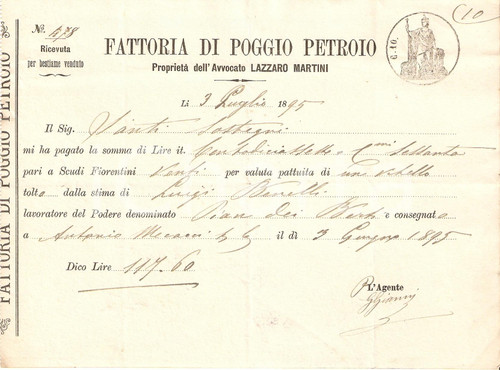 (10
N.º 478
Ricevuta
per bestiame venduto
FATTORIA DI POGGIO PETROIO
Proprietà dell'Avvocato LAZZARO MARTINI
C. 10.
Lì 3 Luglio 1895
Il Sig. Santi Sostegni
mi ha pagato la somma di Lire it. Centodiciassette e C.mi Sessanta
pari a Scudi Fiorentini Venti per valuta pattuita di uno vitello
tolto dalla stima di Luigi Benelli
lavoratore del Podere denominato Pian dei e consegnato
a Antonio Mecacci il dì 3 Giugno 1895
Dico Lire 117.60
L'Agente
P GGianni
FATTORIA DI POGGIO PETROIO